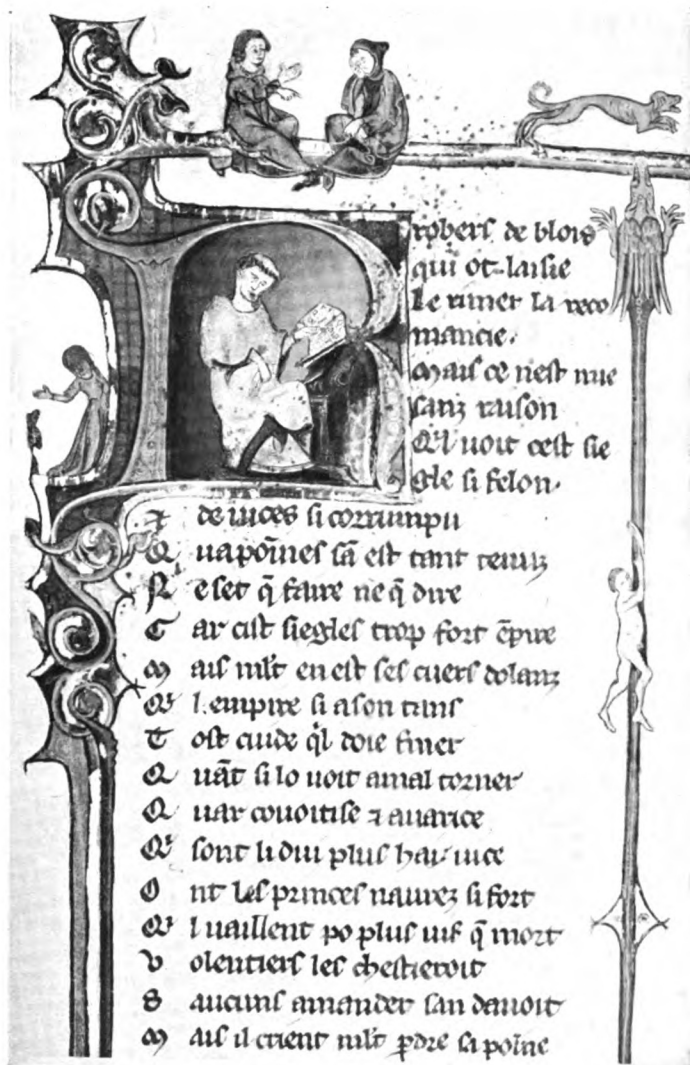 Robers de blois
qui ot laisie
le rimer la reco
mancie.
Mais ce nest mie
sanz raison
Ql uoit cest sie
gle si felon.
de uices si corrumpu
Qua poines sā est tant tenuz
Ne set q̄ faire ne q̄ dire
Car cist siegles trop fort ēpire
Mais ml̄t en est ses cuers dolanz
Ql empire si a son tans
Tost cuide ql doie finer
Quāt si lo uoit a mal torner
Quar couoitise ⁊ auarice
Q sont li dui plus hai uice
Ont les princes naurez si fort
Ql uaillent po plus uif q̄ mort
Volentiers les chestieroit
S aucuns amander san dauoit
Mais il crient ml̄t ꝑdre sa poīne